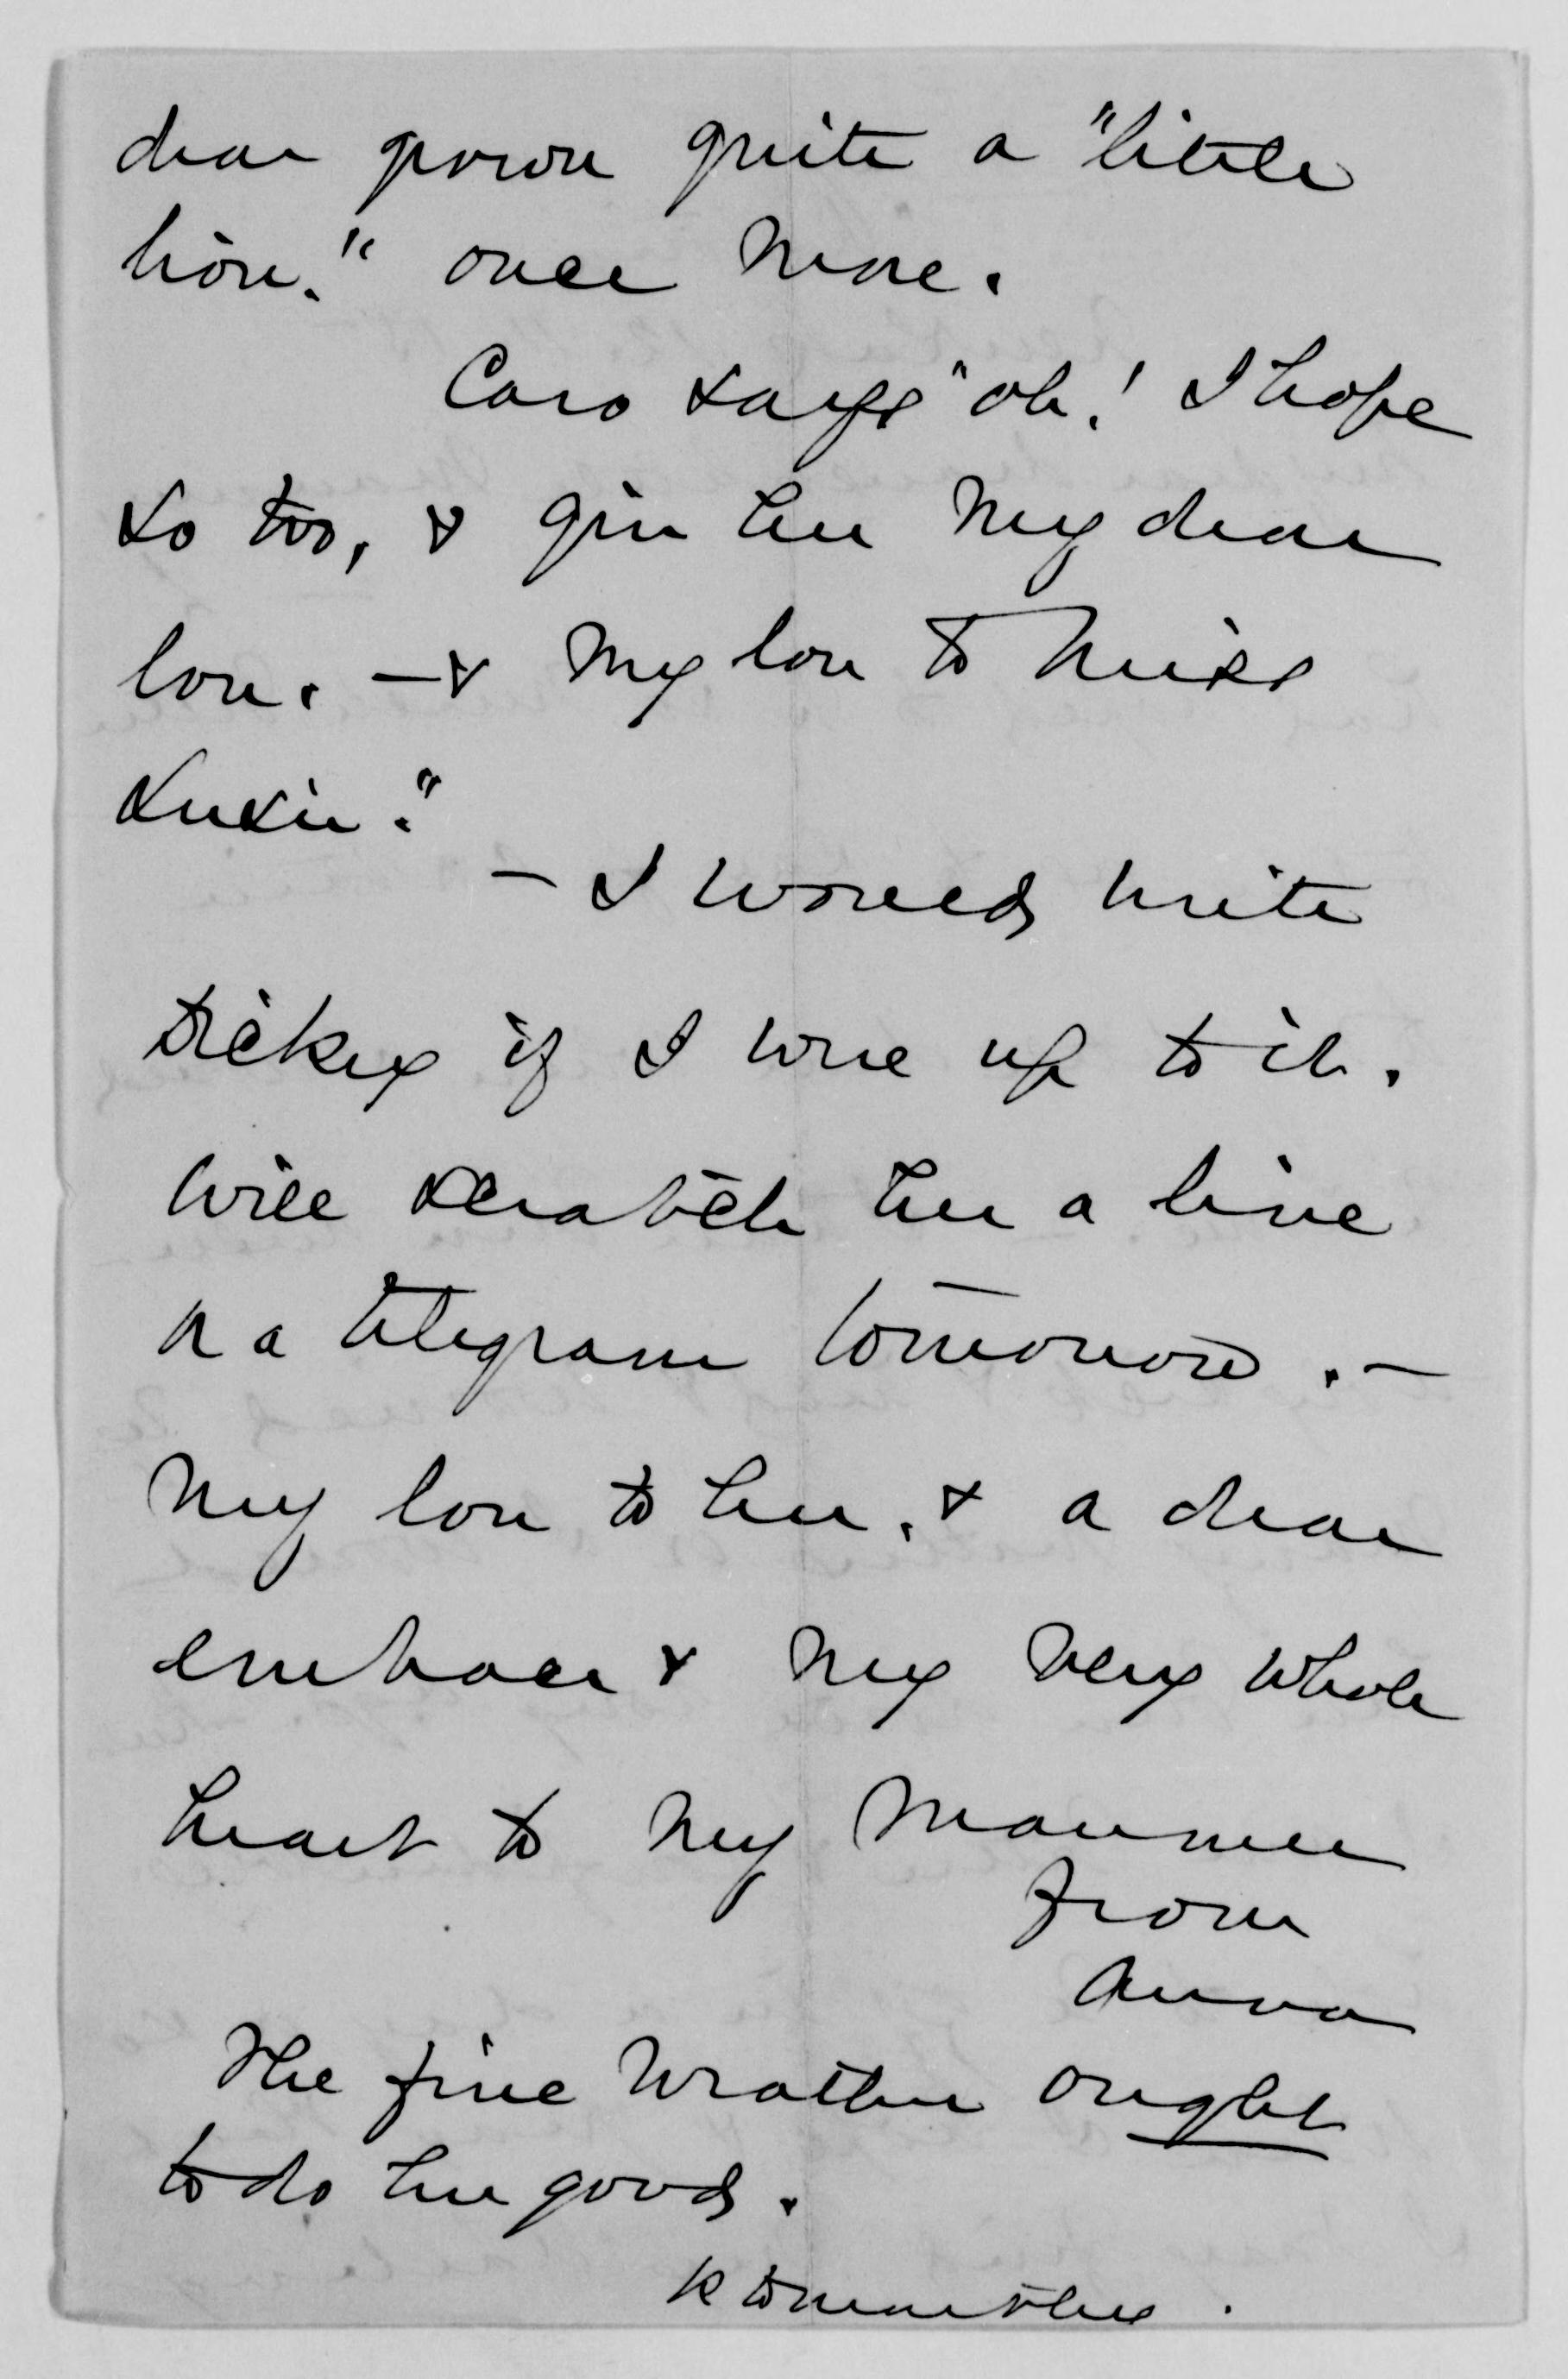 dear grown quite a "little
lion." once more.
Caro says "oh! I hope
so too, & give her my dear
love. — & my love to Miss
Susie."
— I would write
Dickey if I were up to it.
Will scratch her a line
or a telegram tomorrow. —
My love to her, & a dear
embrace & my very whole
heart to my
from
Anna
The fine weather ought
to do her good.